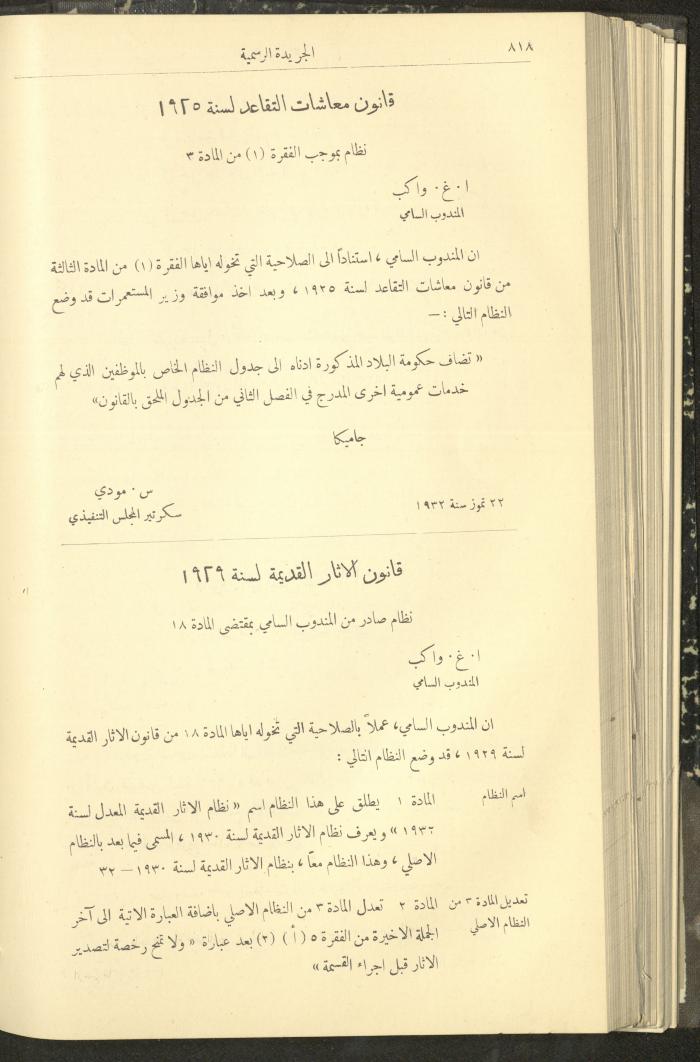 ٨١٨
الجريدة الرسمية
قانون معاشات التقاعد لسنة ١٩٢٥
نظام بموجب الفقرة (١) من المادة ٣
ا٠ غ٠ واكب
المندوب السامي
ان المندوب السامي ، استناداً الى الصلاحية التي تخوله اياها الفقرة (١) من المادة الثالثة
من قانون معاشات التقاعد لسنة ١٩٢٥ ، وبعد اخذ موافقة وزير المستعمرات قد وضع
النظام التالي :—
« تضاف حكومة البلاد المذكورة ادناه الى جدول النظام الخاص بالموظفين الذي لهم
خدمات عمومية اخرى المدرج في الفصل الثاني من الجدول الملحق بالقانون»
جاميكا
س٠ مودي
٢٢ تموز سنة ١٩٣٢
سكرتير المجلس التنفيذي
قانون الاثار القديمة لسنة ١٩٢٩
نظام صادر من المندوب السامي بمقتضى المادة ١٨
ا٠ غ٠ واكب
المندوب السامي
ان المندوب السامي، عملاً بالصلاحية التي تخوله اياها المادة ١٨ من قانون الاثار القديمة
لسنة ١٩٢٩ ، قد وضع النظام التالي :
اسم النظام
المادة ١ يطلق على هذا النظام اسم « نظام الاثار القديمة المعدل لسنة
١٩٣٢ » ويعرف نظام الاثار القديمة لسنة ١٩٣٠ ، المسمى فيما بعد بالنظام
الاصلي ، وهذا النظام معاً ، بنظام الاثار القديمة لسنة ١٩٣٠ — ٣٢
تعديل المادة ٣ من
النظام الاصلي
المادة ٢ تعدل المادة ٣ من النظام الاصلي باضافة العبارة الاتية الى آخر
الجملة الاخيرة من الفقرة ٥ (أ) (٢) بعد عبارة « ولا تمنح رخصة لتصدير
الاثار قبل اجراء القسمة »